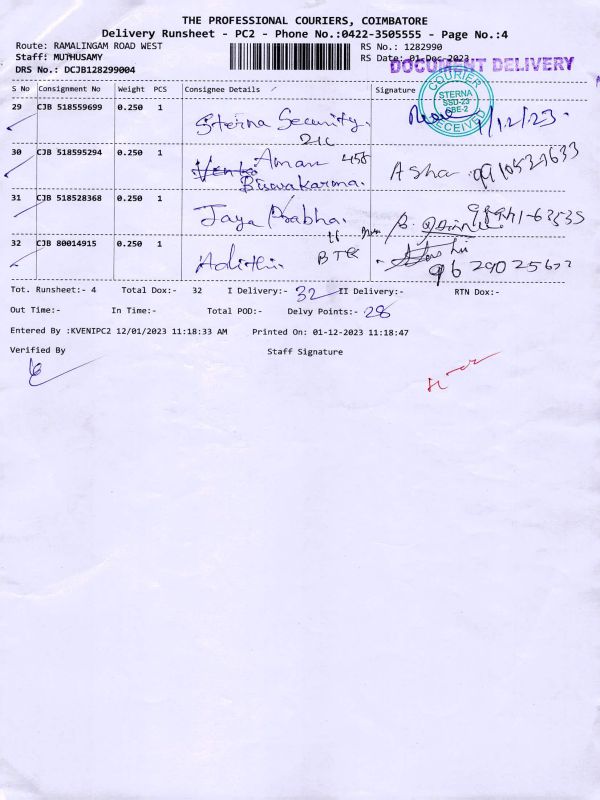 THE PROFESSIONAL COURIERS, COIMBATORE
Delivery Runsheet - PC2 - Phone No.:0422-3505555 - Page No.:4
Route: RAMALINGAM ROAD WEST
RS No.: 1282990
Staff: MUTHUSAMY
RS Date: 01-Dec-2023
DOCUMENT DELIVERY
DRS No.: DCJB128299004
S No Consignment No Weight PCS Consignee Details Signature
COURIER
STERNA
SSD-23
RECEIVED
29 CJB 518559699 0.250 1 Sterna Security. 1/12/23.
30 CJB 518595294 0.250 1 Aman 458 Asha
Biswakarma.
31 CJB 518528368 0.250 1 Jaya Prabha.
32 CJB 80014915 0.250 1 Adithi.
Tot. Runsheet:- 4 Total Dox:- 32 I Delivery:- 32 II Delivery:- RTN Dox:-
Out Time:- In Time:- Total POD:- Delvy Points:- 28
Entered By :KVENIPC2 12/01/2023 11:18:33 AM Printed On: 01-12-2023 11:18:47
Verified By Staff Signature